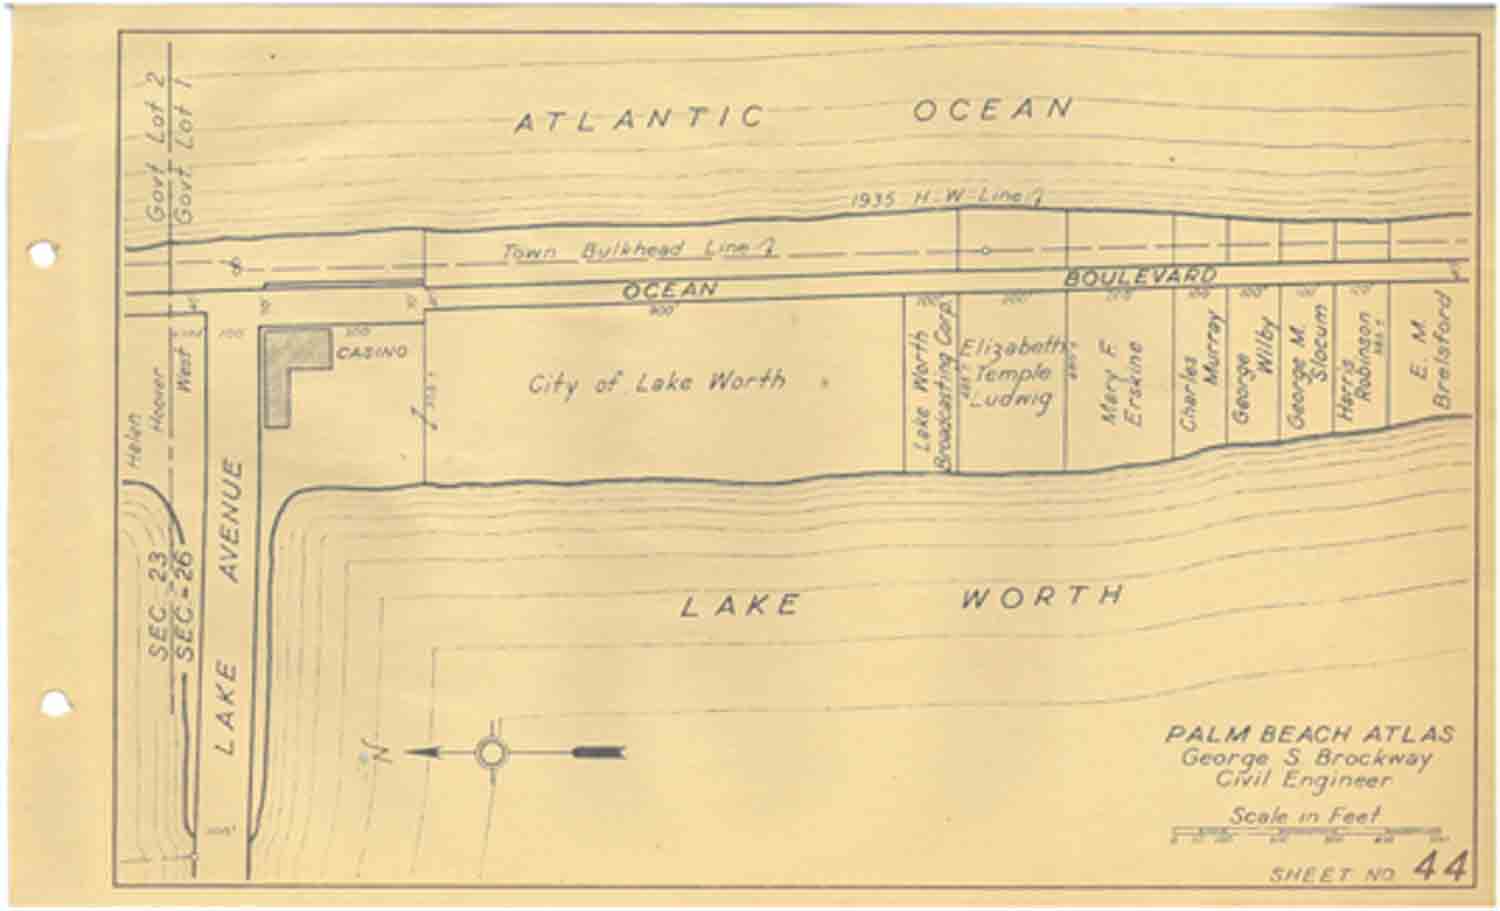 Gov't Lot 2
Gov't. Lot 1
ATLANTIC OCEAN
1935 H. W. Line
Town Bulkhead Line
OCEAN BOULEVARD
900'
100'
200'
200'
100'
100'
100'
100'
100
300
CASINO
City of Lake Worth
Lake Worth
Broadcasting Corp.
Elizabeth
Temple
Ludwig
Mary F.
Erskine
Charles
Murray
George
Wilby
George M.
Slocum
Harris
Robinson
E. M.
Brelsford
Helen
Hoover
West
SEC - 23
SEC - 26
LAKE AVENUE
LAKE WORTH
N
PALM BEACH ATLAS
George S. Brockway
Civil Engineer
Scale in Feet
SHEET NO. 44